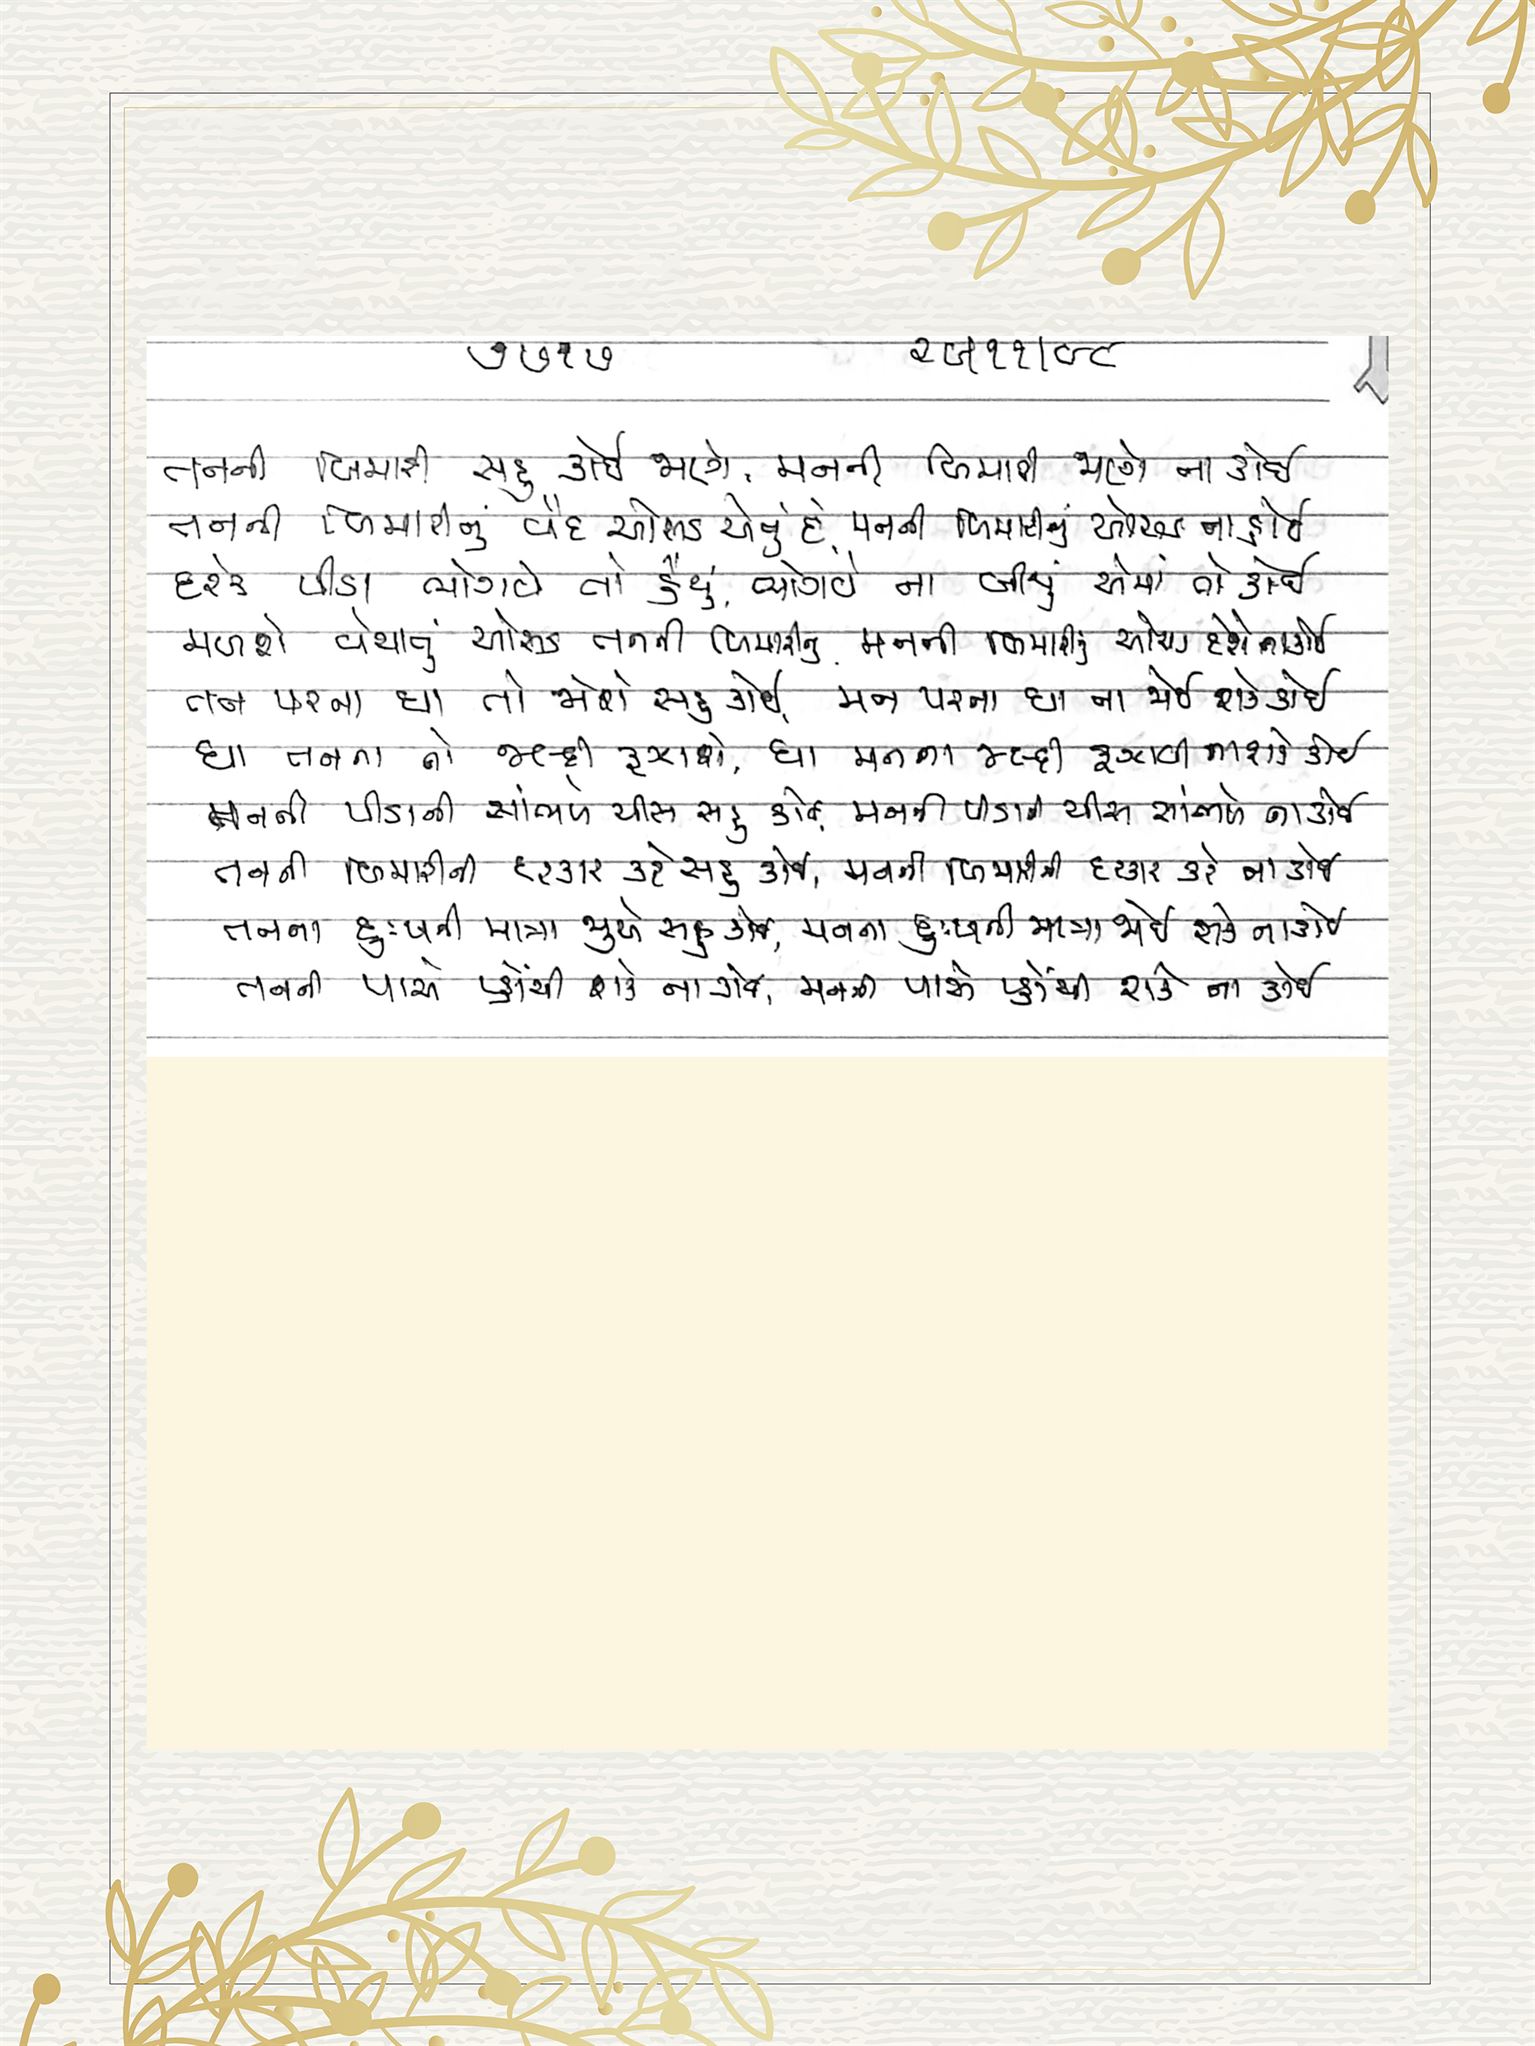 ૭૭૧૭ ૨૫૧૧૧૯૮
તનની બિમારી સહુ કોઈ જાણે, મનની બિમારી જાણે ના કોઈ
તનની બિમારીનું વૈદ ઓસડ દે, મનની બિમારીનું ઓસડ ના કોઈ
હરેક પીડા ભોગવે તો હૈયું, ભોગવે ના બીજું એમાં તો કોઈ
મળશે ઓસડ તનની બિમારીનું, મનની બિમારીનું ઓસડ દેશે ના કોઈ
તન પરના ઘા તો જોશે સહુ કોઈ, મન પરના ઘા ના જોઈ શકે કોઈ
ઘા તનના તો જલ્દી રૂઝાશે, ઘા મનના જલ્દી રૂઝાવી ના શકે કોઈ
તનની પીડાની સાંભળે ચીસ સહુ કોઈ, મનની પીડાની ચીસ સાંભળે ના કોઈ
તનની બિમારીની દરકાર કરે સહુ કોઈ, મનની બિમારીની દરકાર કરે ના કોઈ
તનના દુઃખની માત્રા જુએ સહુ કોઈ, મનના દુઃખની માત્રા જોઈ શકે ના કોઈ
તનની પાસે પહોંચી શકે ના કોઈ, મનની પાસે પહોંચી શકે ના કોઈ